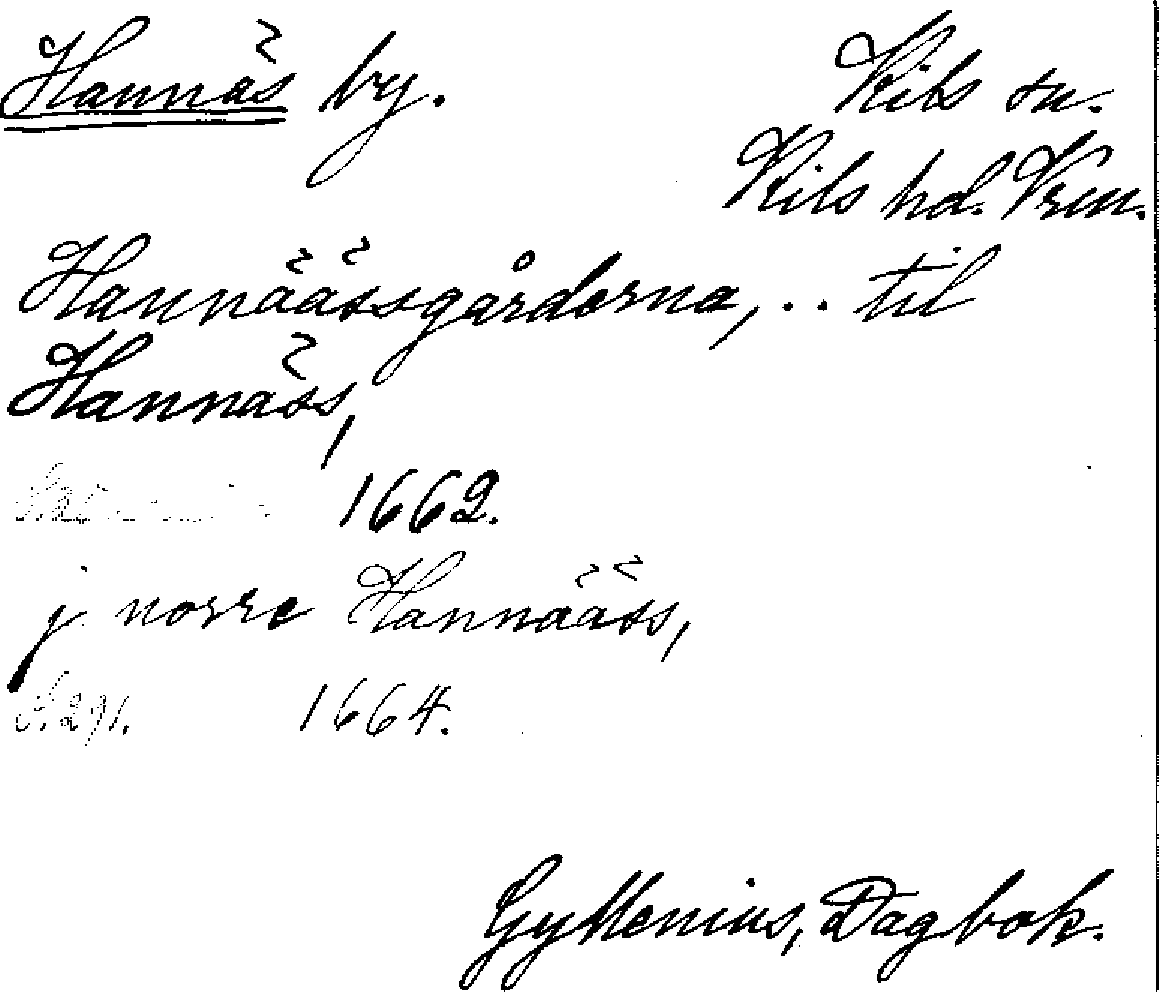 Hannäs by.
Kils sn.
Kils hd. Vrm.
Hannäässgårderna, .. til
Hannäss,
1662.
j norre Hannääss,
S. 291. 1664.
Gyllenius, Dagbok.